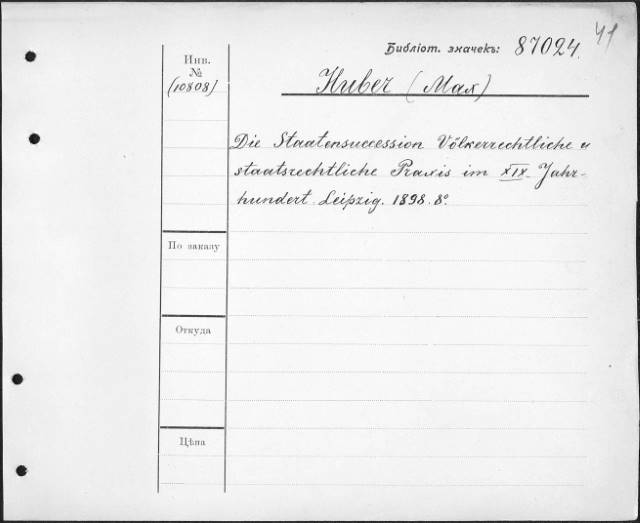 41
Библіот. значекъ: 87024.
Инв.
№
(10808)
Huber (Max)
Die Staatensuccession Völkerrechtliche u
staatsrechtliche Praxis im XIX. Jahr-
hundert. Leipzig. 1898. 8°.
По заказу
Откуда
Цѣна